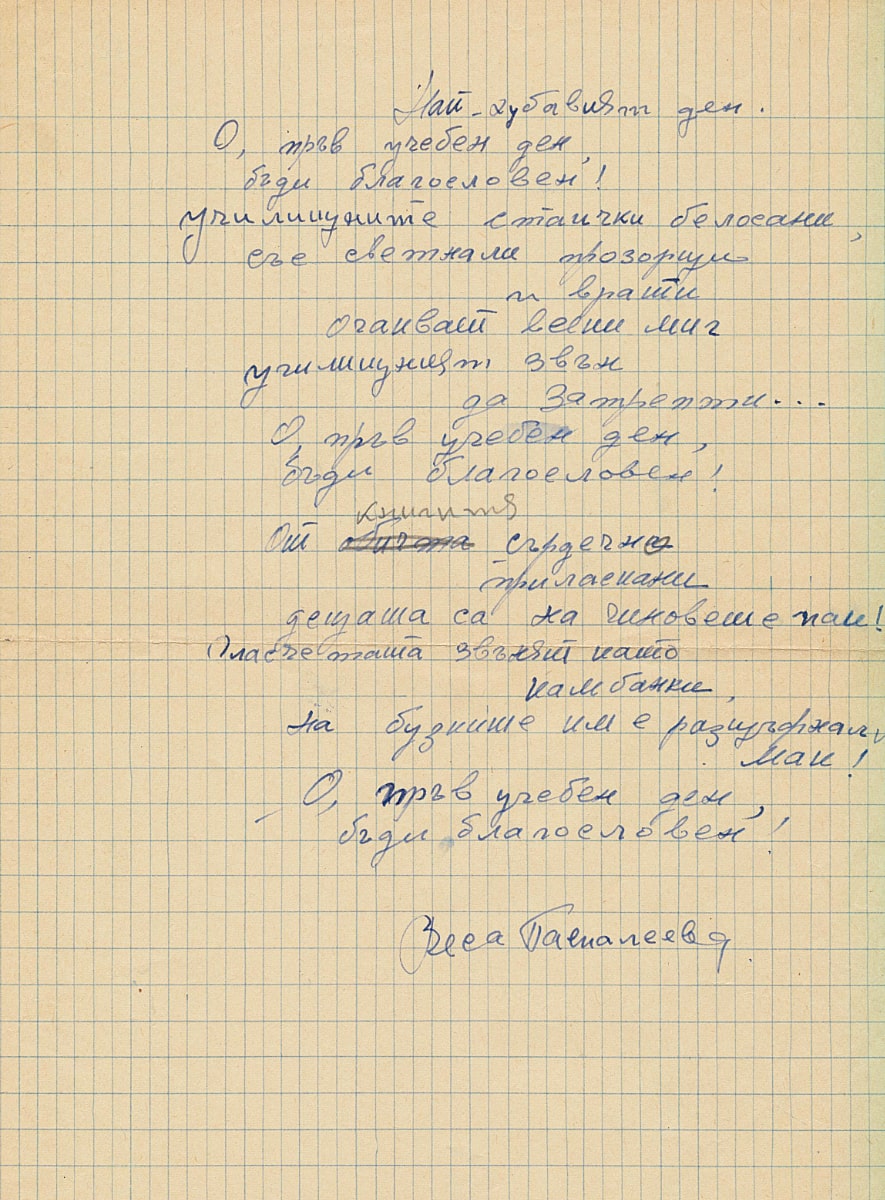 Най-хубавият ден.
О, пръв учебен ден,
бъди благословен!
училищните стаички белосани,
със светнали прозорци
и врати
очакват всеки миг
училищният звън
да затрепти...
О, пръв учебен ден,
бъди благословен!
книгите
От обичта сърдечно
приласкани
децата са на чиновете пак!
Гласчетата звънят като
камбанки,
на бузките им е разцъфнал
мак!
О, пръв учебен ден,
бъди благословен!
Веса Паспалеева